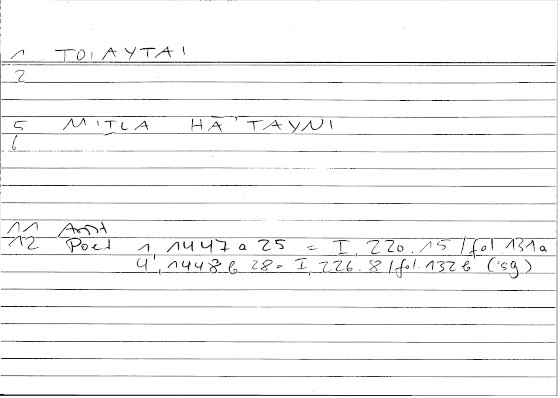 1 ΤΟΙΑΥΤΑΙ
2
5 MITLA HĀ'TAYNI
6
11 Arist
12 Poet 1, 1447 a 25 = I, 220.15 / fol 131a
4, 1448 b 28 = I, 226.8 / fol. 132 b (sg)